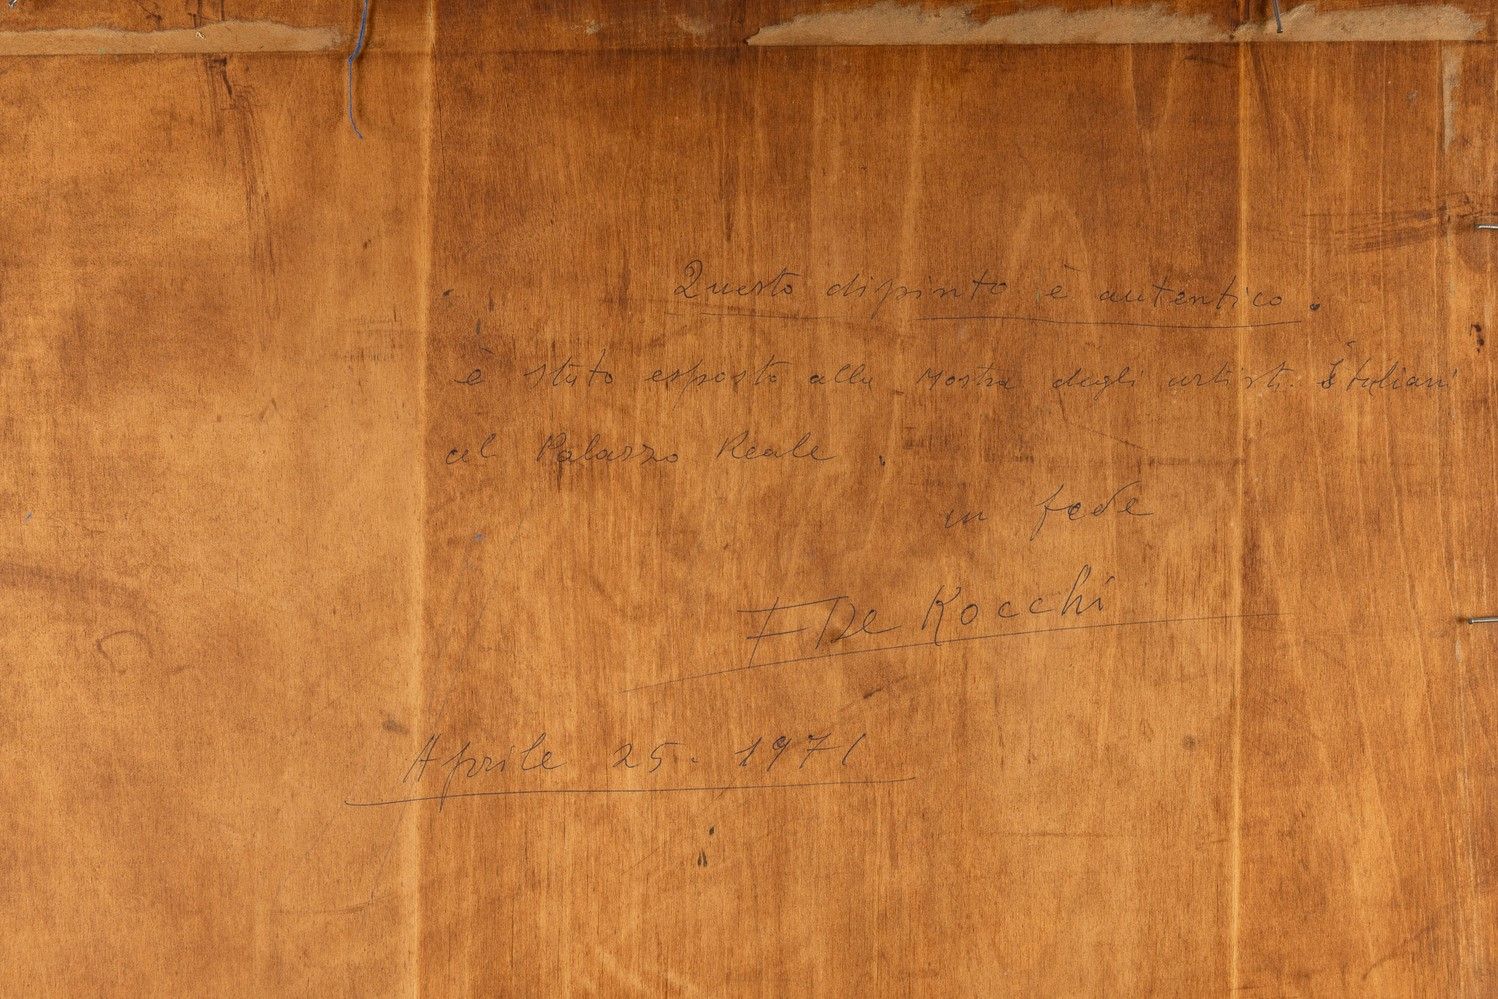 Questo dipinto è autentico.
è stato esposto alla Mostra degli artisti Italiani
al Palazzo Reale.
in fede
F De Rocchi
Aprile 25. 1971